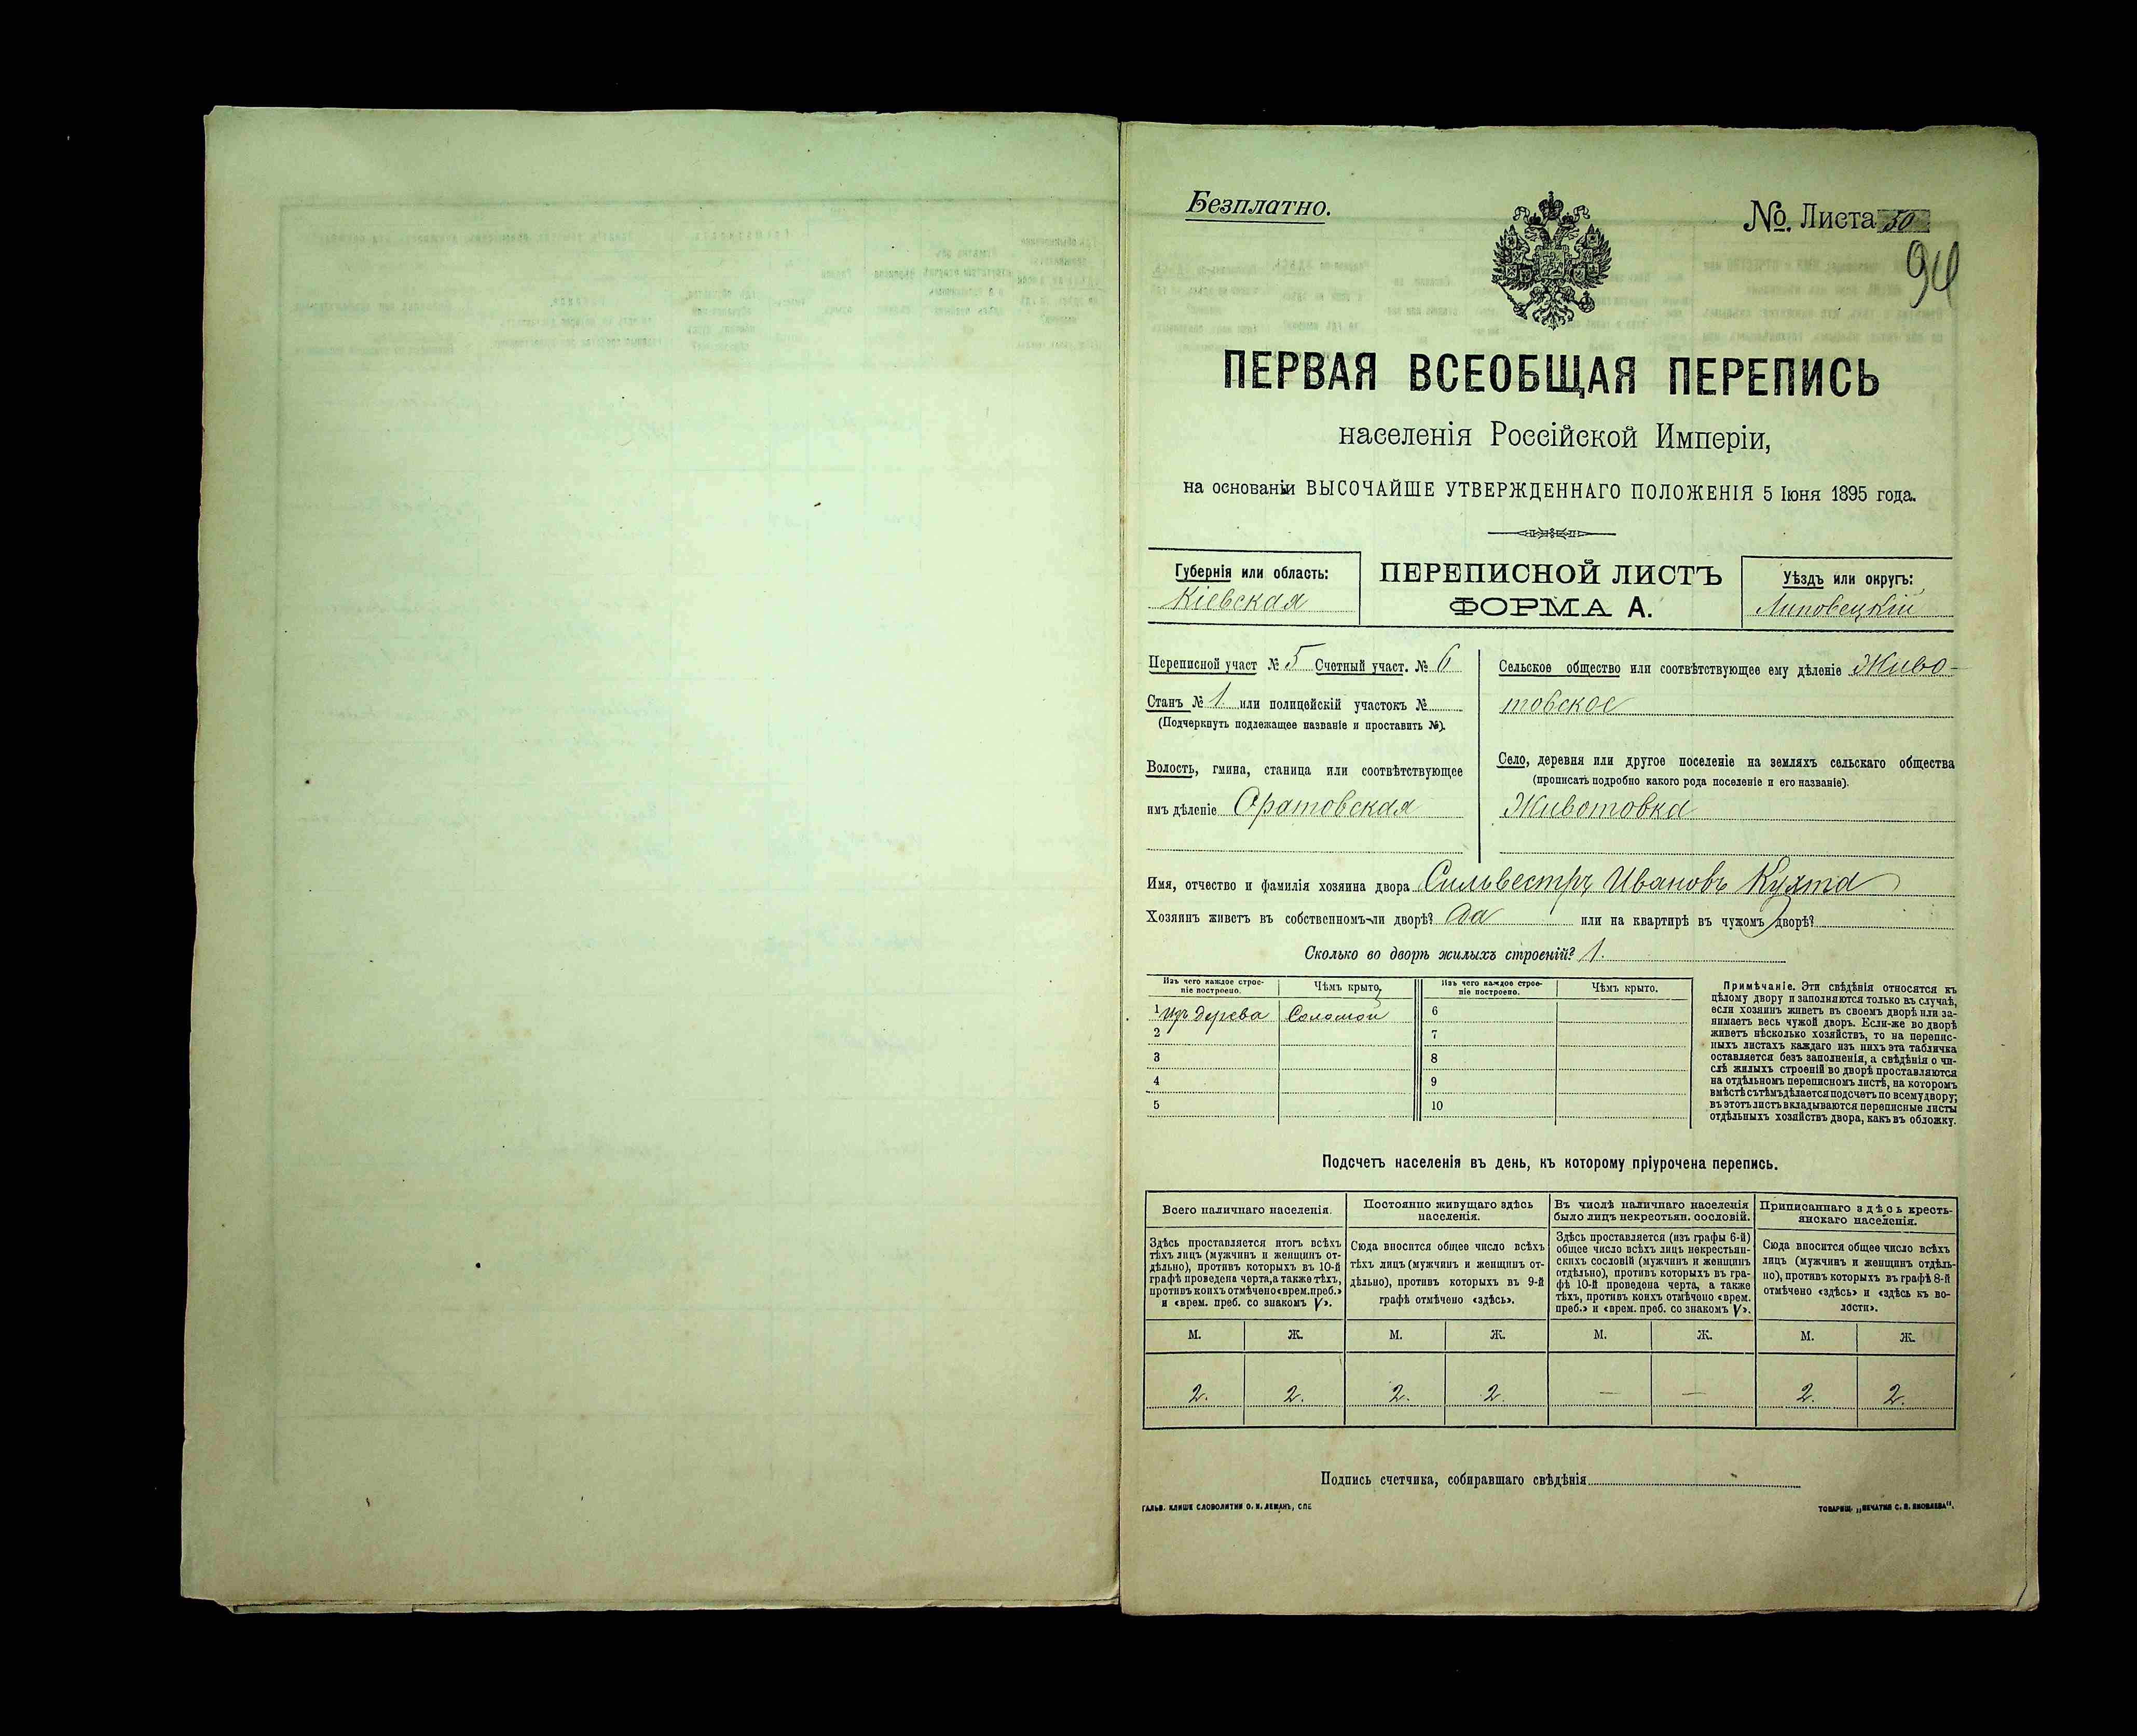 Безплатно.
№. Листа 50
94
ПЕРВАЯ ВСЕОБЩАЯ ПЕРЕПИСЬ
населенія Россійской Имперіи,
на основаніи ВЫСОЧАЙШЕ УТВЕРЖДЕННАГО ПОЛОЖЕНІЯ 5 Іюня 1895 года.
Губернія или область:
Кіевская
ПЕРЕПИСНОЙ ЛИСТЪ
ФОРМА А.
Уѣздъ или округъ:
Липовецкій
Переписной участ № 5 Счетный участ. № 6
Станъ № 1. или полицейскій участокъ №
(Подчеркнуть подлежащее названіе и проставить №).
Волость, гмина, станица или соотвѣтствующее
имъ дѣленіе Оратовская
Сельское общество или соотвѣтствующее ему дѣленіе Живо-
товское
Село, деревня или другое поселеніе на земляхъ сельскаго общества
(прописать подробно какого рода поселеніе и его названіе).
Животовка
Имя, отчество и фамилія хозяина двора Сильвестръ Ивановъ Кухта
Хозяинъ живетъ въ собственномъ-ли дворѣ? да или на квартирѣ въ чужомъ дворѣ?
Сколько во дворѣ жилыхъ строеній? 1.
Изъ чего каждое строе-
ніе построено.
Чѣмъ крыто,
Изъ чего каждое строе-
ніе построено.
Чѣмъ крыто.
1 изъ дерева Соломой 6
2 7
3 8
4 9
5 10
Примѣчаніе. Эти свѣдѣнія относятся къ
цѣлому двору и заполняются только въ случаѣ,
если хозяинъ живетъ въ своемъ дворѣ или за-
нимаетъ весь чужой дворъ. Если-же во дворѣ
живетъ нѣсколько хозяйствъ, то на перепис-
ныхъ листахъ каждаго изъ нихъ эта табличка
оставляется безъ заполненія, а свѣдѣнія о чи-
слѣ жилыхъ строеній во дворѣ проставляются
на отдѣльномъ переписномъ листѣ, на которомъ
вмѣстѣ съ тѣмъ дѣлается подсчетъ по всему двору;
въ этотъ листъ вкладываются переписные листы
отдѣльныхъ хозяйствъ двора, какъ въ обложку.
Подсчетъ населенія въ день, къ которому пріурочена перепись.
Всего наличнаго населенія.
Здѣсь проставляется итогъ всѣхъ
тѣхъ лицъ (мужчинъ и женщинъ от-
дѣльно), противъ которыхъ въ 10-й
графѣ проведена черта, а также тѣхъ,
противъ коихъ отмѣчено «врем. преб.»
и «врем. преб. со знакомъ V».
Постоянно живущаго здѣсь
населенія.
Сюда вносится общее число всѣхъ
тѣхъ лицъ (мужчинъ и женщинъ от-
дѣльно), противъ которыхъ въ 9-й
графѣ отмѣчено «здѣсь».
Въ числѣ наличнаго населенія
было лицъ некрестьян. сословій.
Здѣсь проставляется (изъ графы 6-й)
общее число всѣхъ лицъ некрестьян-
скихъ сословій (мужчинъ и женщинъ
отдѣльно), противъ которыхъ въ гра-
фѣ 10-й проведена черта, а также
тѣхъ, противъ коихъ отмѣчено «врем.
преб.» и «врем. преб. со знакомъ V».
Приписаннаго здѣсь кресть-
янскаго населенія.
Сюда вносится общее число всѣхъ
лицъ (мужчинъ и женщинъ отдѣль-
но), противъ которыхъ въ графѣ 8-й
отмѣчено «здѣсь» и «здѣсь къ во-
лости».
М. Ж. М. Ж. М. Ж. М. Ж.
2. 2. 2. 2. — — 2. 2.
Подпись счетчика, собиравшаго свѣдѣнія
ГАЛЬВ. КЛИШЕ СЛОВОЛИТНИ О. И. ЛЕМАНЪ, СПБ
ТОВАРИЩ. „ПЕЧАТНЯ С. П. ЯКОВЛЕВА".